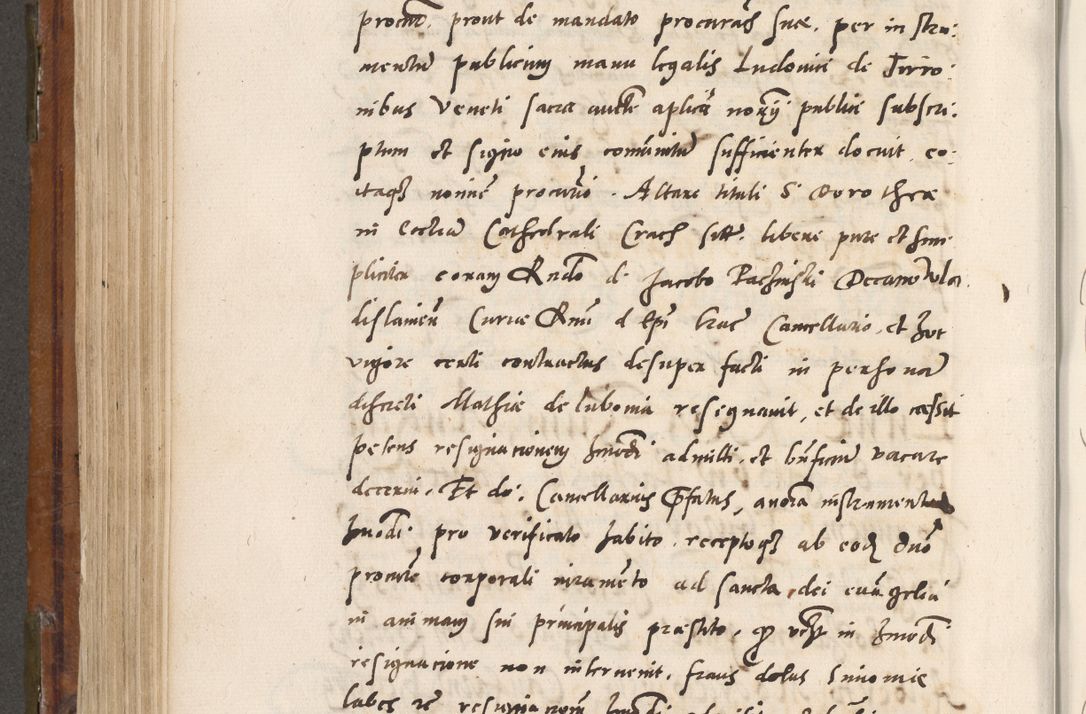 procur. prout de mandato procurae suae, per instru:
mentum publicum manu legalis Ludovici de Tirro:
nibus Veneti sacra aucte aplica norii publici subscri:
ptum et signo eius comunitum sufficienter docuit, eo:
itaqs nomine procurio. Altare tituli S. Dorotheae
in Ecclia Cathedrali Crach sitt. libere pure et sim
pliciter coram Rndo d. Jacobo Paczinski Decano Vla:
dislavien Curiae Rmi d Epi Crac Cancellario, et hoc
vigore certi contractus desuper facti in personam
discreti Mathiae de Lubonia resegnavit, et de illo caessit
petens resignationem hmodi admitti, et bnficium vacare
decerni. Et do: Cancellarius pfatus, avora instrument
hmodi pro verificato habito, receptoqs ab eod dno
procure corporali iuramento ad sancta dei euangelia
in animam sui principalis praestito, q vest in hmodi
resignacione non intervenit, fraus dolus Simoniae
labes